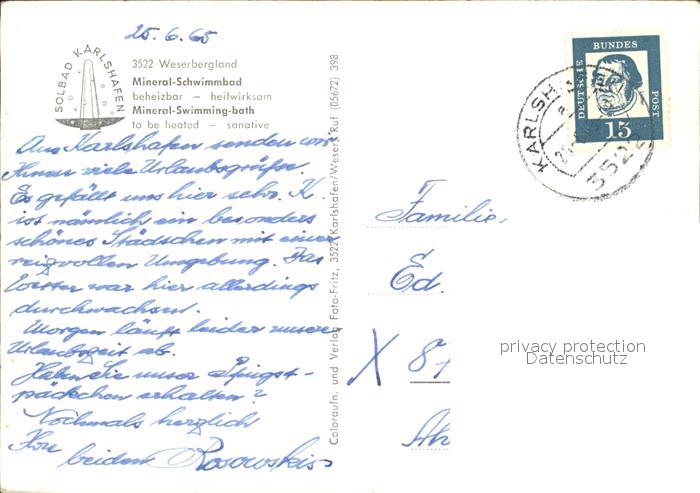 25.6.65
SOLBAD KARLSHAFEN
3522 Weserbergland
Mineral-Schwimmbad
beheizbar — heilwirksam
Mineral-Swimming-bath
to be heated — sanative
Aus Karlshafen senden wir
Ihnen viele Urlaubsgrüße.
Es gefällt uns hier sehr. K.
ist nämlich ein besonders
schönes Städtchen mit einer
reizvollen Umgebung. Das
Wetter war hier allerdings
durchwachsen.
Morgen läuft leider unsere
Urlaubszeit ab.
Haben Sie unser Pfingst-
päckchen erhalten?
Nochmals herzlich
Ihre
beiden Rosowskis
Coloraufn. und Verlag Foto-Fritz, 3522 Karlshafen/Weser, Ruf (05672) 398
DEUTSCHE BUNDES POST
15
KARLSH
3522
Familie
Ed.
X 87
privacy protection
Datenschutz